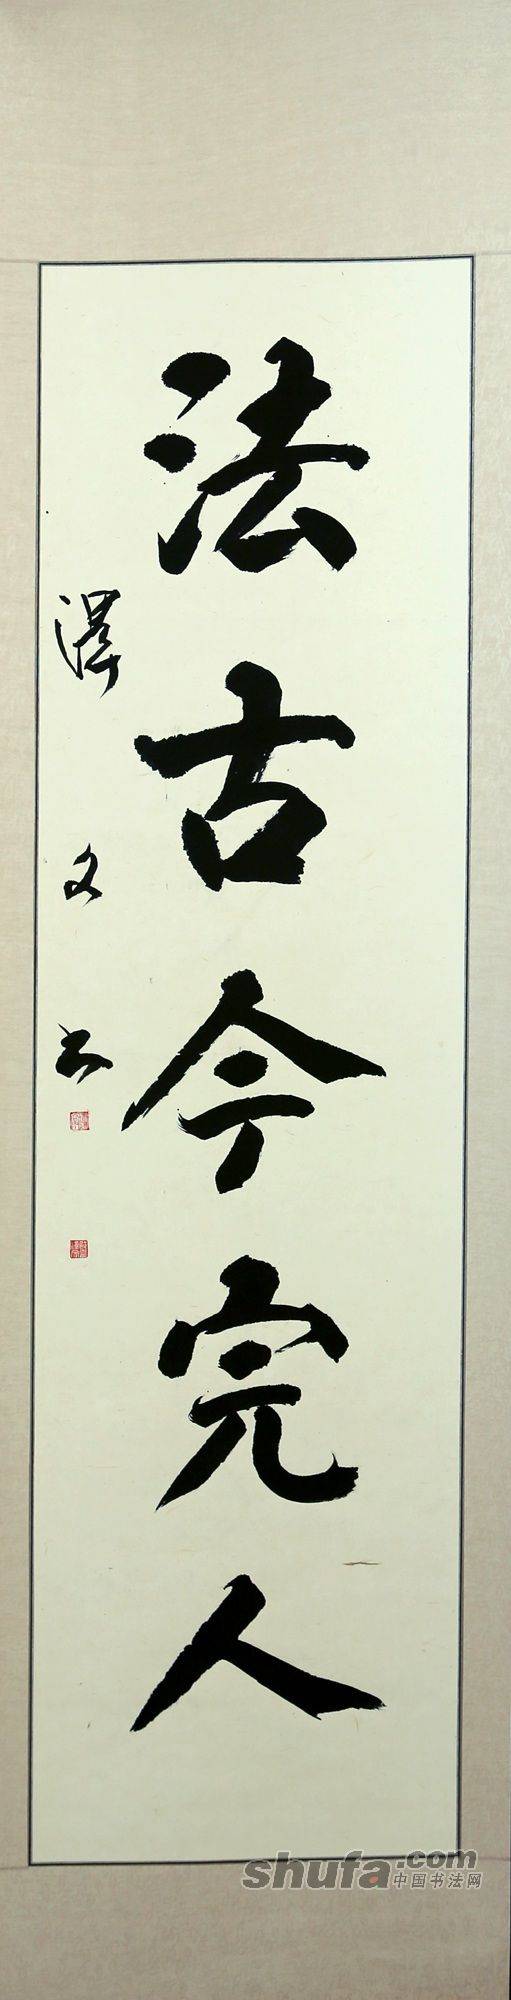 法古今完人
泽文书
shufa.com
中国书法网